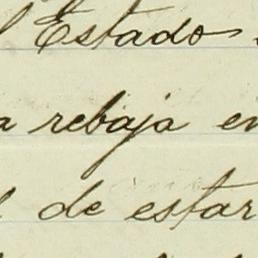 l Estado
a rebaja en
de estar